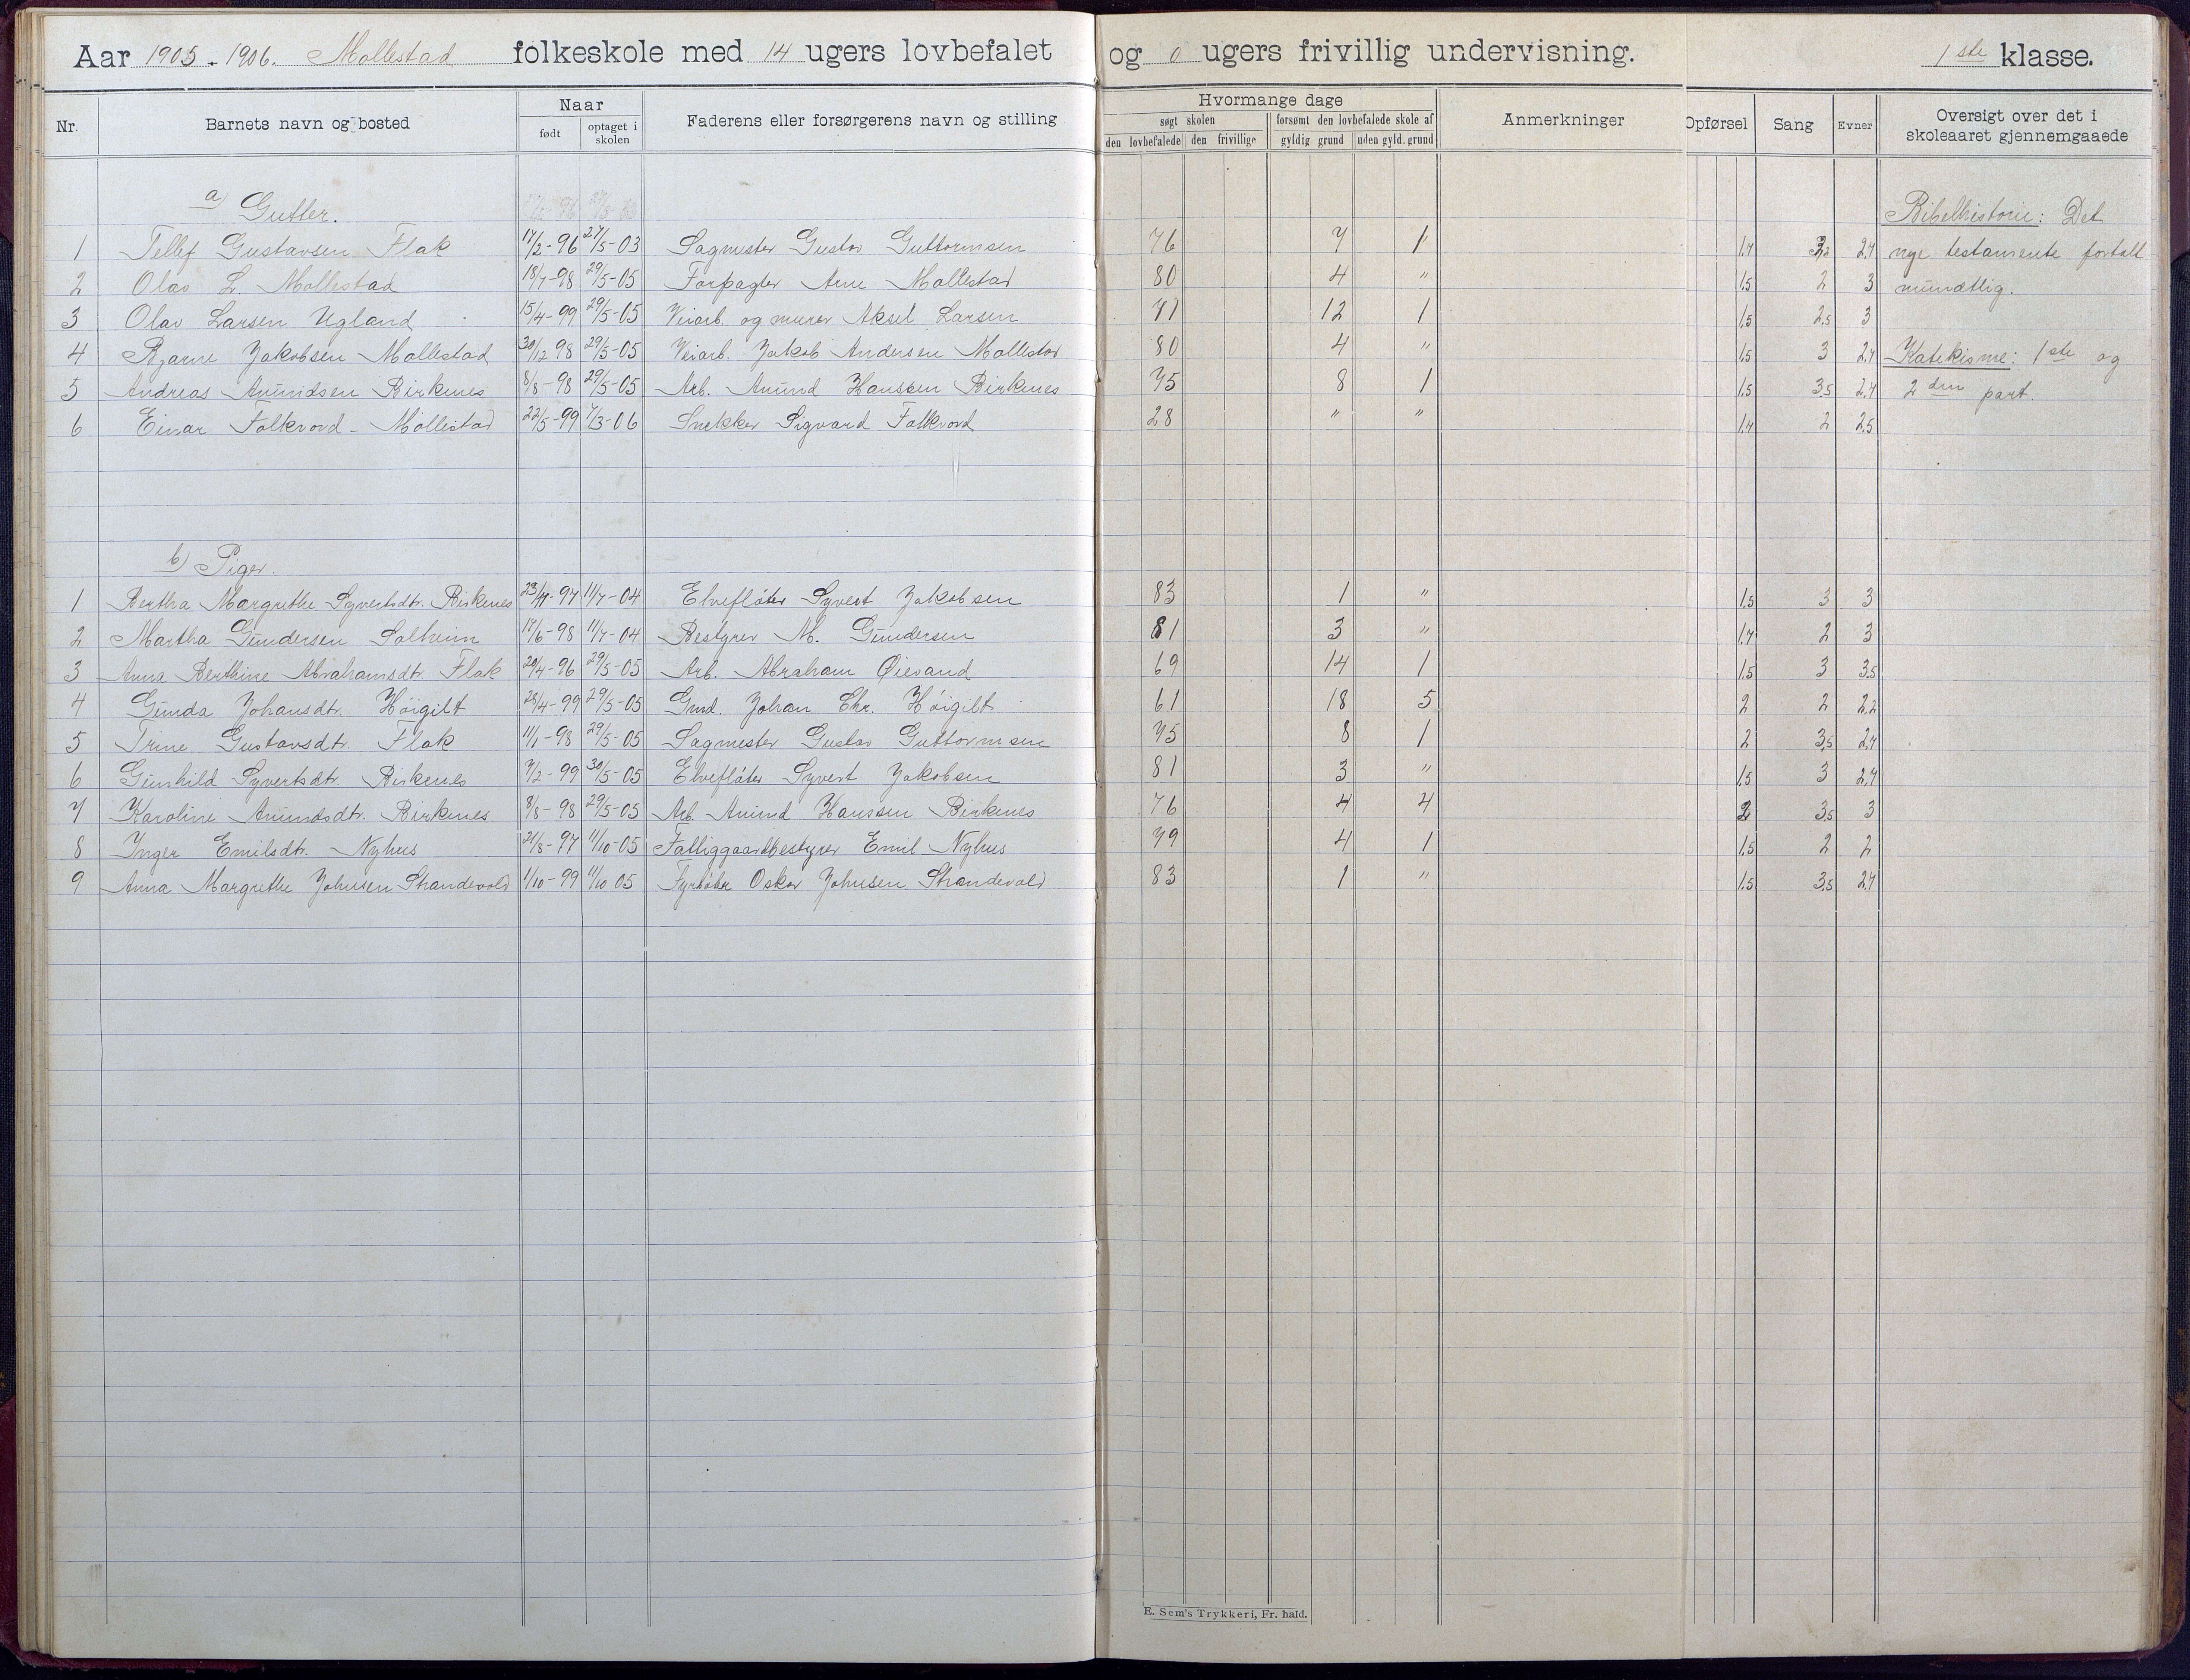 Aar 1905 - 1906. Mollestad folkeskole med 14 ugers lovbefalet og 0 ugers frivillig undervisning. 1ste klasse.
Nr. Barnets navn og bosted Naar født optaget i skolen Faderens eller forsørgerens navn og stilling Hvormange dage søgt skolen den lovbefalede den frivillige forsømt den lovbefalede skole af gyldig grund uden gyld. grund Anmerkninger Opførsel Sang Evner Oversigt over det i skoleaaret gjennemgaaede
a) Gutter. Bibelhistorie: Det
1 Tellef Gustavsen Flak 17/2-96 27/5-03 Sagmester Gustav Guttormsen 76 7 1 1,7 2,4 nye testamente fortalt
2 Olav L. Mollestad 18/7-98 29/5-05 Forpagter Arne Mollestad 80 4 " 1,5 2 3 mundtlig.
3 Olav Larsen Ugland 15/4-99 29/5-05 Veiarb. og murer Aksel Larsen 71 12 1 1,5 2,5 3
4 Bjarne Jakobsen Mollestad 30/12 98 29/5-05 Veiarb. Jakob Andersen Mollestad 80 4 " 1,5 3 2,7 Katekisme: 1ste og
5 Andreas Anundsen Birkenes 8/8-98 29/5-05 Arb. Anund Hanssen Birkenes 75 8 1 1,5 3,5 2,4 2den part.
6 Einar Folkvord - Mollestad 22/5-99 7/3-06 Snekker Sigvard Folkvord 28 " " 1,7 2 2,5
b) Piger.
1 Bertha Margrethe Syvertsdtr. Birkenes 23/11-97 11/7-04 Elvefløter Syvert Jakobsen 83 1 " 1,5 3 3
2 Martha Gundersen Solheim 17/6-98 11/7-04 Bestyrer M. Gundersen 81 3 " 1,7 2 3
3 Anna Berthine Abrahamsdtr. Flak 20/4-96 29/5-05 Arb. Abraham Øievand 69 14 1 1,5 3 3,5
4 Gunda Johansdtr. Höigilt 28/4-99 29/5-05 Gmd. Johan Chr. Höigilt 61 18 5 2 2 2,2
5 Trine Gustavsdtr. Flak 11/1-98 29/5-05 Sagmester Gustav Guttormsen 75 8 1 2 3,5 2,7
6 Gunhild Syvertsdtr. Birkenes 7/2-99 30/5-05 Elvefløter Syvert Jakobsen 81 3 " 1,5 3 2,7
7 Karoline Anundsdtr. Birkenes 8/8-98 29/5-05 Arb. Anund Hanssen Birkenes 76 4 4 2 3,5 3
8 Inger Emilsdtr. Nyhus 21/8-97 11/10-05 Fattiggaardbestyrer Emil Nyhus 79 4 1 1,5 2 2
9 Anna Margrethe Johnsen Strandevold 1/10-99 11/10 05 Fyrbøter Oskar Johnsen Strandevold 83 1 " 1,5 3,5 2,7
E. Sem's Trykkeri, Fr. hald.